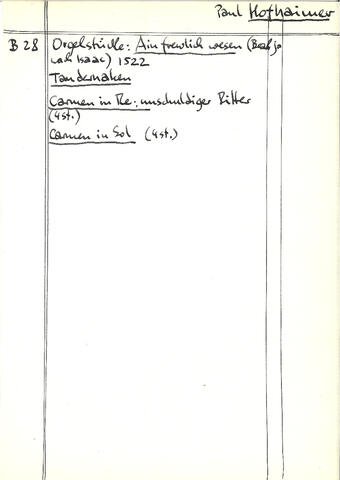 Paul Hofhaimer
B 28 Orgelstücke: Ain frewlich wesen (Barbi
nach Isaac) 1522
Tandernaken
Carmen in Re: unschuldiger Ritter
(4st.)
Carmen in Sol (4st.)